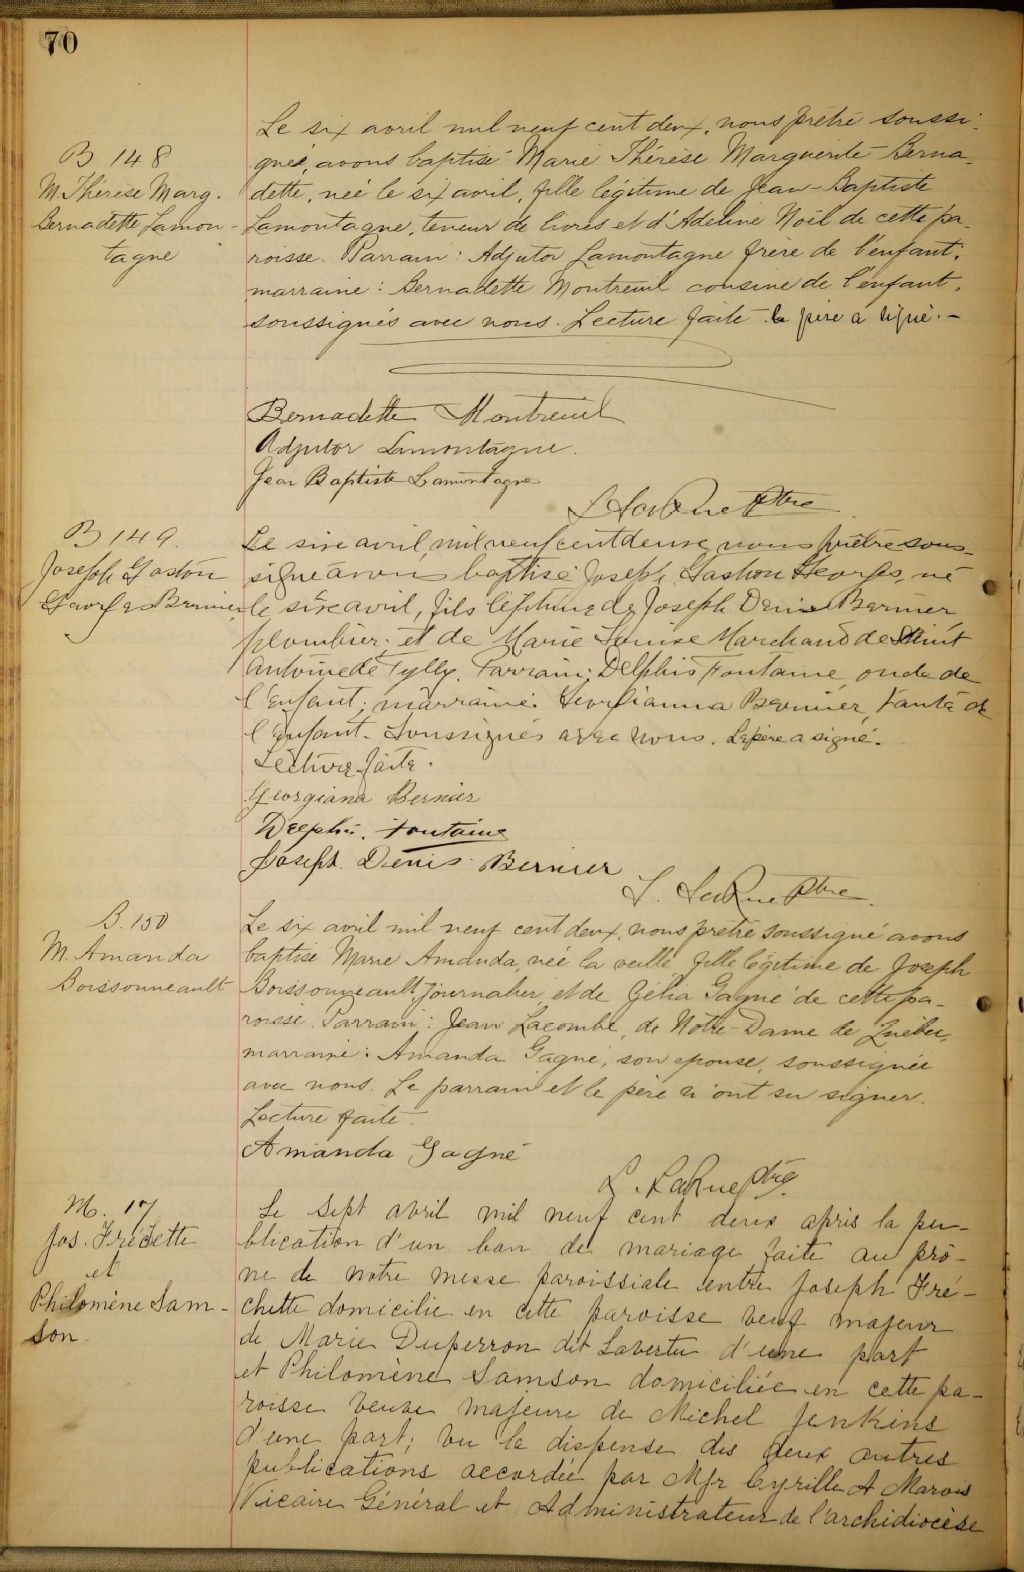 70
B 148
M. Thérèse Marg.
Bernadette Lamon-
tagne
Le six avril mil neuf cent deux, nous prêtre soussi-
gné, avons baptisé Marie Thérèse Marguerite Berna-
dette, née le six avril, fille légitime de Jean-Baptiste
Lamontagne, teneur de livres et d'Adeline Noël de cette pa-
roisse. Parrain: Adjutor Lamontagne frère de l'enfant,
marraine: Bernadette Montreuil cousine de l'enfant,
soussignés avec nous. Lecture faite le père a signé.-
Bernadette Montreuil
Adjutor Lamontagne.
Jean Baptiste Lamontagne
L LaRue Ptre
B 149.
Joseph Gaston
Georges Bernier
Le six avril, mil neuf cent deux, nous prêtre sous-
signé avons baptisé Joseph Gaston Georges, né
le six avril, fils légitime de Joseph Denis Bernier
plombier, et de Marie Louise Marchand de Saint
Antoine de Tylly. Parrain; Delphis Fontaine, oncle de
l'enfant; marraine: Georgianna Bernier, tante de
l'enfant. Soussignés avec nous. Le père a signé.
Lecture faite.
Georgiana Bernier
Delphis. Fontaine
Joseph Denis Bernier
L. LaRue Ptre.
B. 150
M. Amanda
Boissonneault
Le six avril mil neuf cent deux, nous prêtre soussigné avons
baptisé Marie Amanda, née la veille, fille légitime de Joseph
Boissonneault, journalier, et de Célia Gagné de cette pa-
roisse. Parrain: Jean Lacombe, de Notre-Dame de Québec,
marraine: Amanda Gagné, son épouse, soussignée
avec nous. Le parrain et le père n'ont su signer.
Lecture faite.
Amanda Gagné
L. LaRue Ptre.
M. 17
Jos. Fréchette
et
Philomène Sam-
son.
Le Sept avril mil neuf cent deux après la pu-
blication d'un ban de mariage faite au prô-
ne de notre messe paroissiale entre Joseph Fré-
chette domicilié en cette paroisse veuf majeur
de Marie Duperron dit Lavertu d'une part
et Philomène Samson domiciliée en cette pa-
roisse veuve majeure de Michel Jenkins
d'une part; vu la dispense des deux autres
publications accordée par Mgr Cyrille A Marois
Vicaire Général et Administrateur de l'archidiocèse